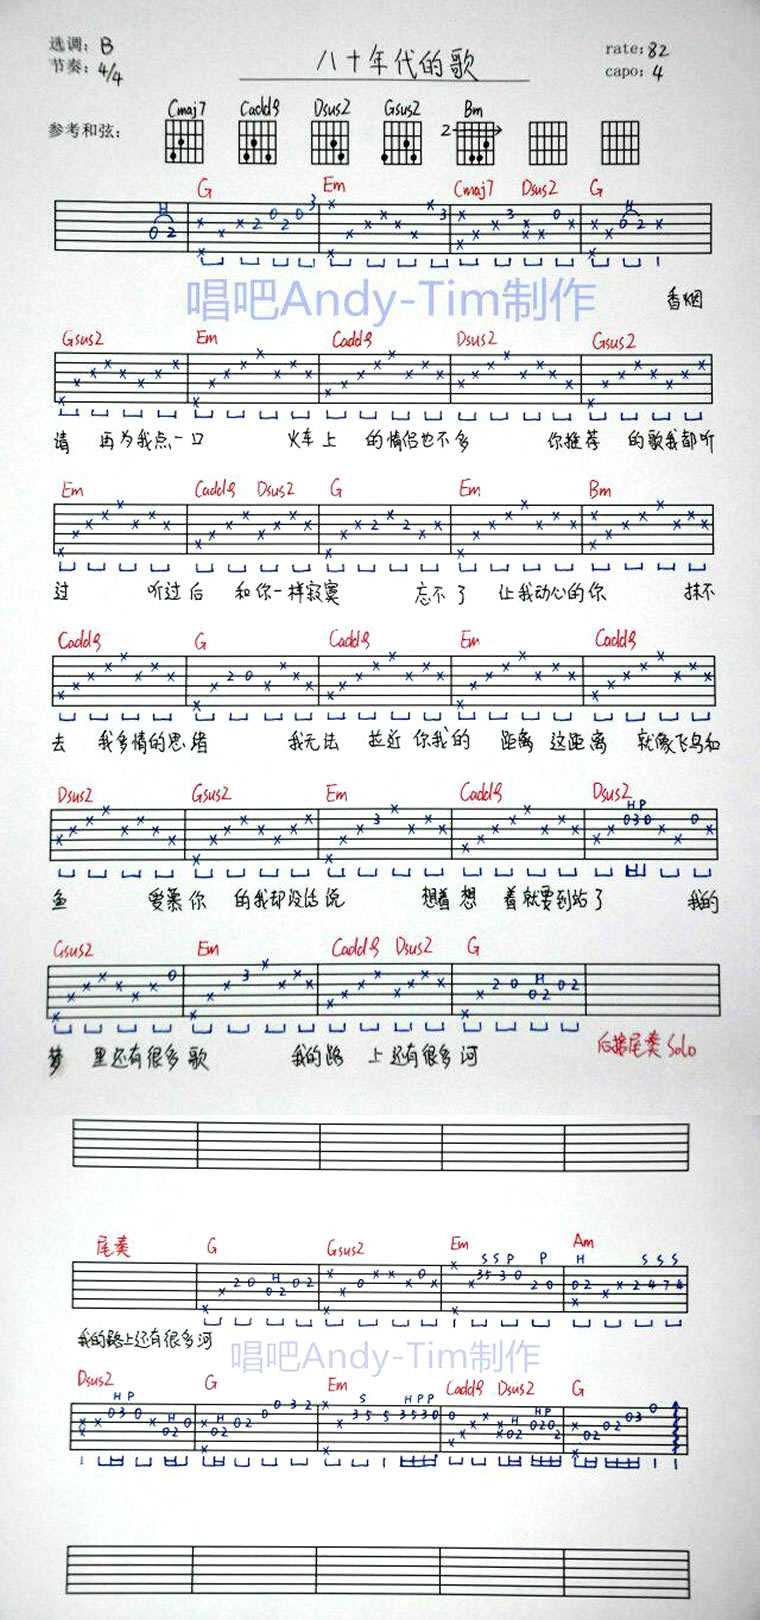 选调：B
八十年代的歌
rate: 82
节奏：4/4
capo: 4
参考和弦：
Cmaj7 Cadd9 Dsus2 Gsus2 Bm
2
G Em Cmaj7 Dsus2 G
H
唱吧Andy-Tim制作
香烟
Gsus2 Em Cadd9 Dsus2 Gsus2
请 再为我点一口 火车上 的情侣也不多 你推荐 的歌我都听
Em Cadd9 Dsus2 G Em Bm
过 听过后 和你一样寂寞 忘不了 让我动心的你 抹不
Cadd9 G Cadd9 Em Cadd9
去 我多情的思绪 我无法 拉近你我的 距离 这距离 就像飞鸟和
Dsus2 Gsus2 Em Cadd9 Dsus2
H P
鱼 爱慕你 的我却没话说 想着想 着就要到站了 我的
Gsus2 Em Cadd9 Dsus2 G
H
梦 里还有很多歌 我的路 上还有很多河
后接尾奏 Solo
尾奏 G Gsus2 Em Am
H S S P P H S S S
我的路上还有很多河
唱吧Andy-Tim制作
Dsus2 G Em Cadd9 Dsus2 G
H P H H S H P P H H P